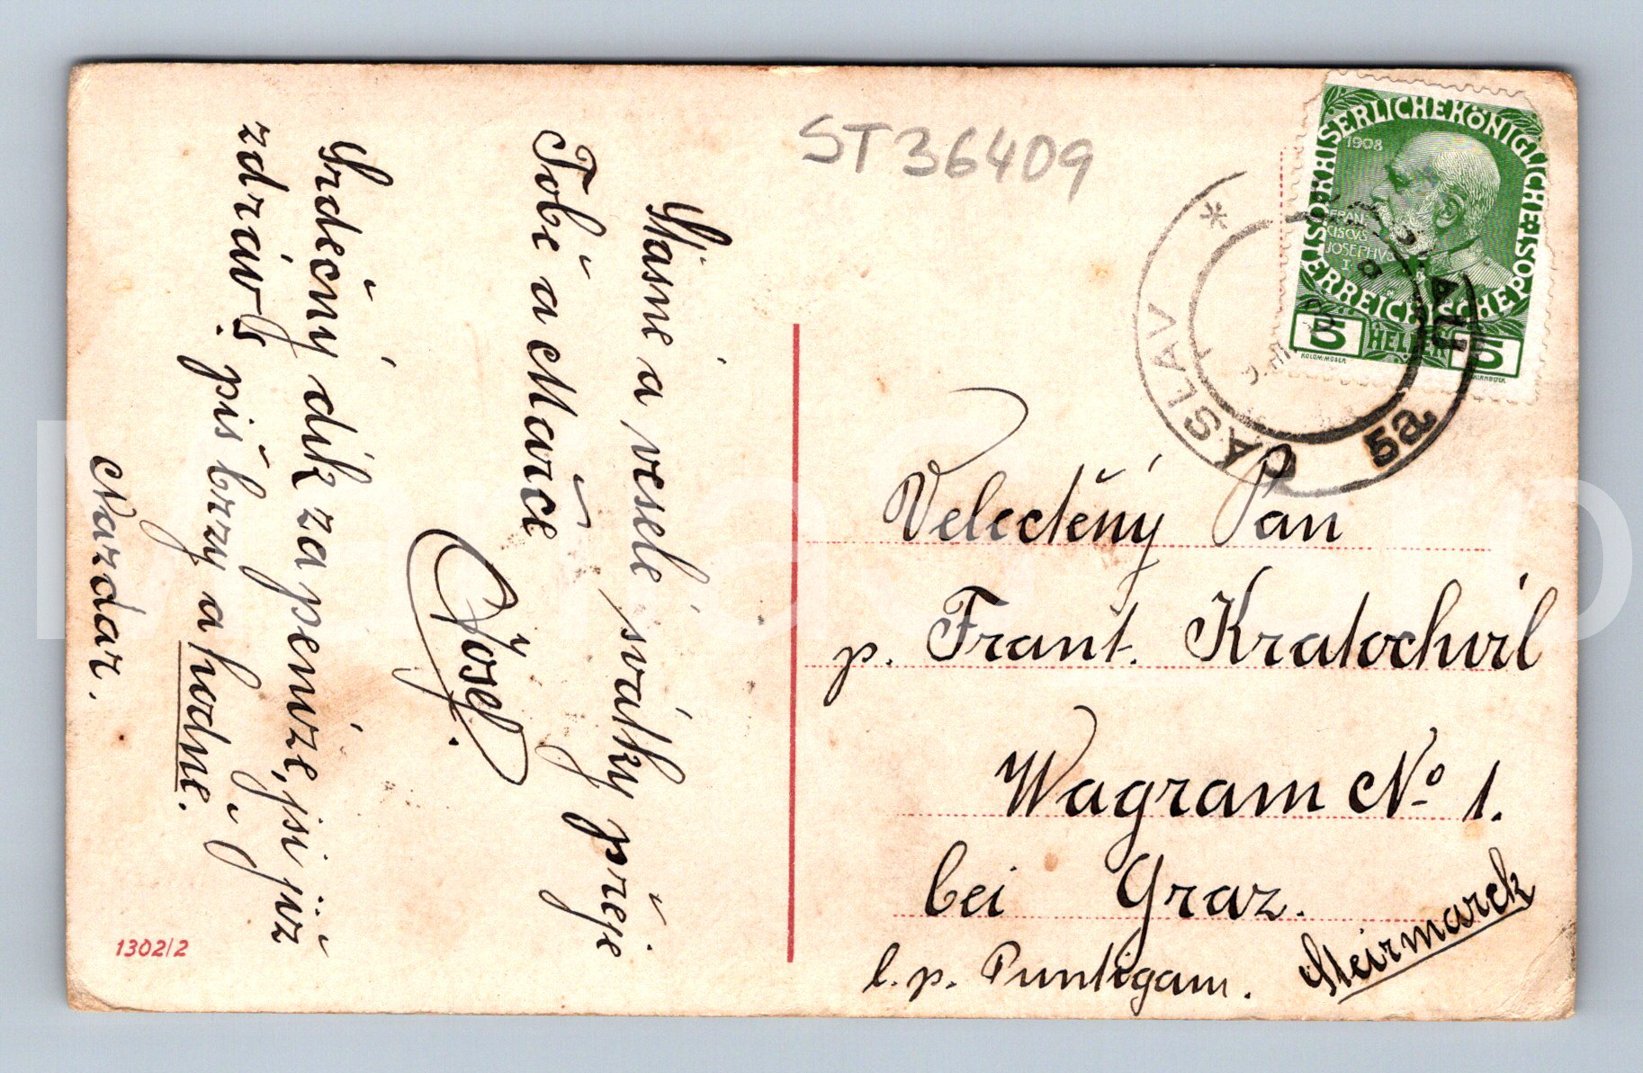 ST36409
Šťasné a veselé svátky přeje
Tobě a Mařce
Josef.
Srdečný dík za peníze, jsi již
zdráv? piš brzy a hodně.
Nazdar.
1302/2
KAISERLICHEKÖNIGLICHE ÖSTERREICHISCHE POST
1908
FRAN
CISCUS
JOSEPHUS
I
5 HELLER 5
KOLOM·MOSER
ČÁSLAV
5a
Velectěný Pan
p. Frant. Kratochvíl
Wagram No 1.
bei Graz.
l. p. Puntigam.
Steirmarck